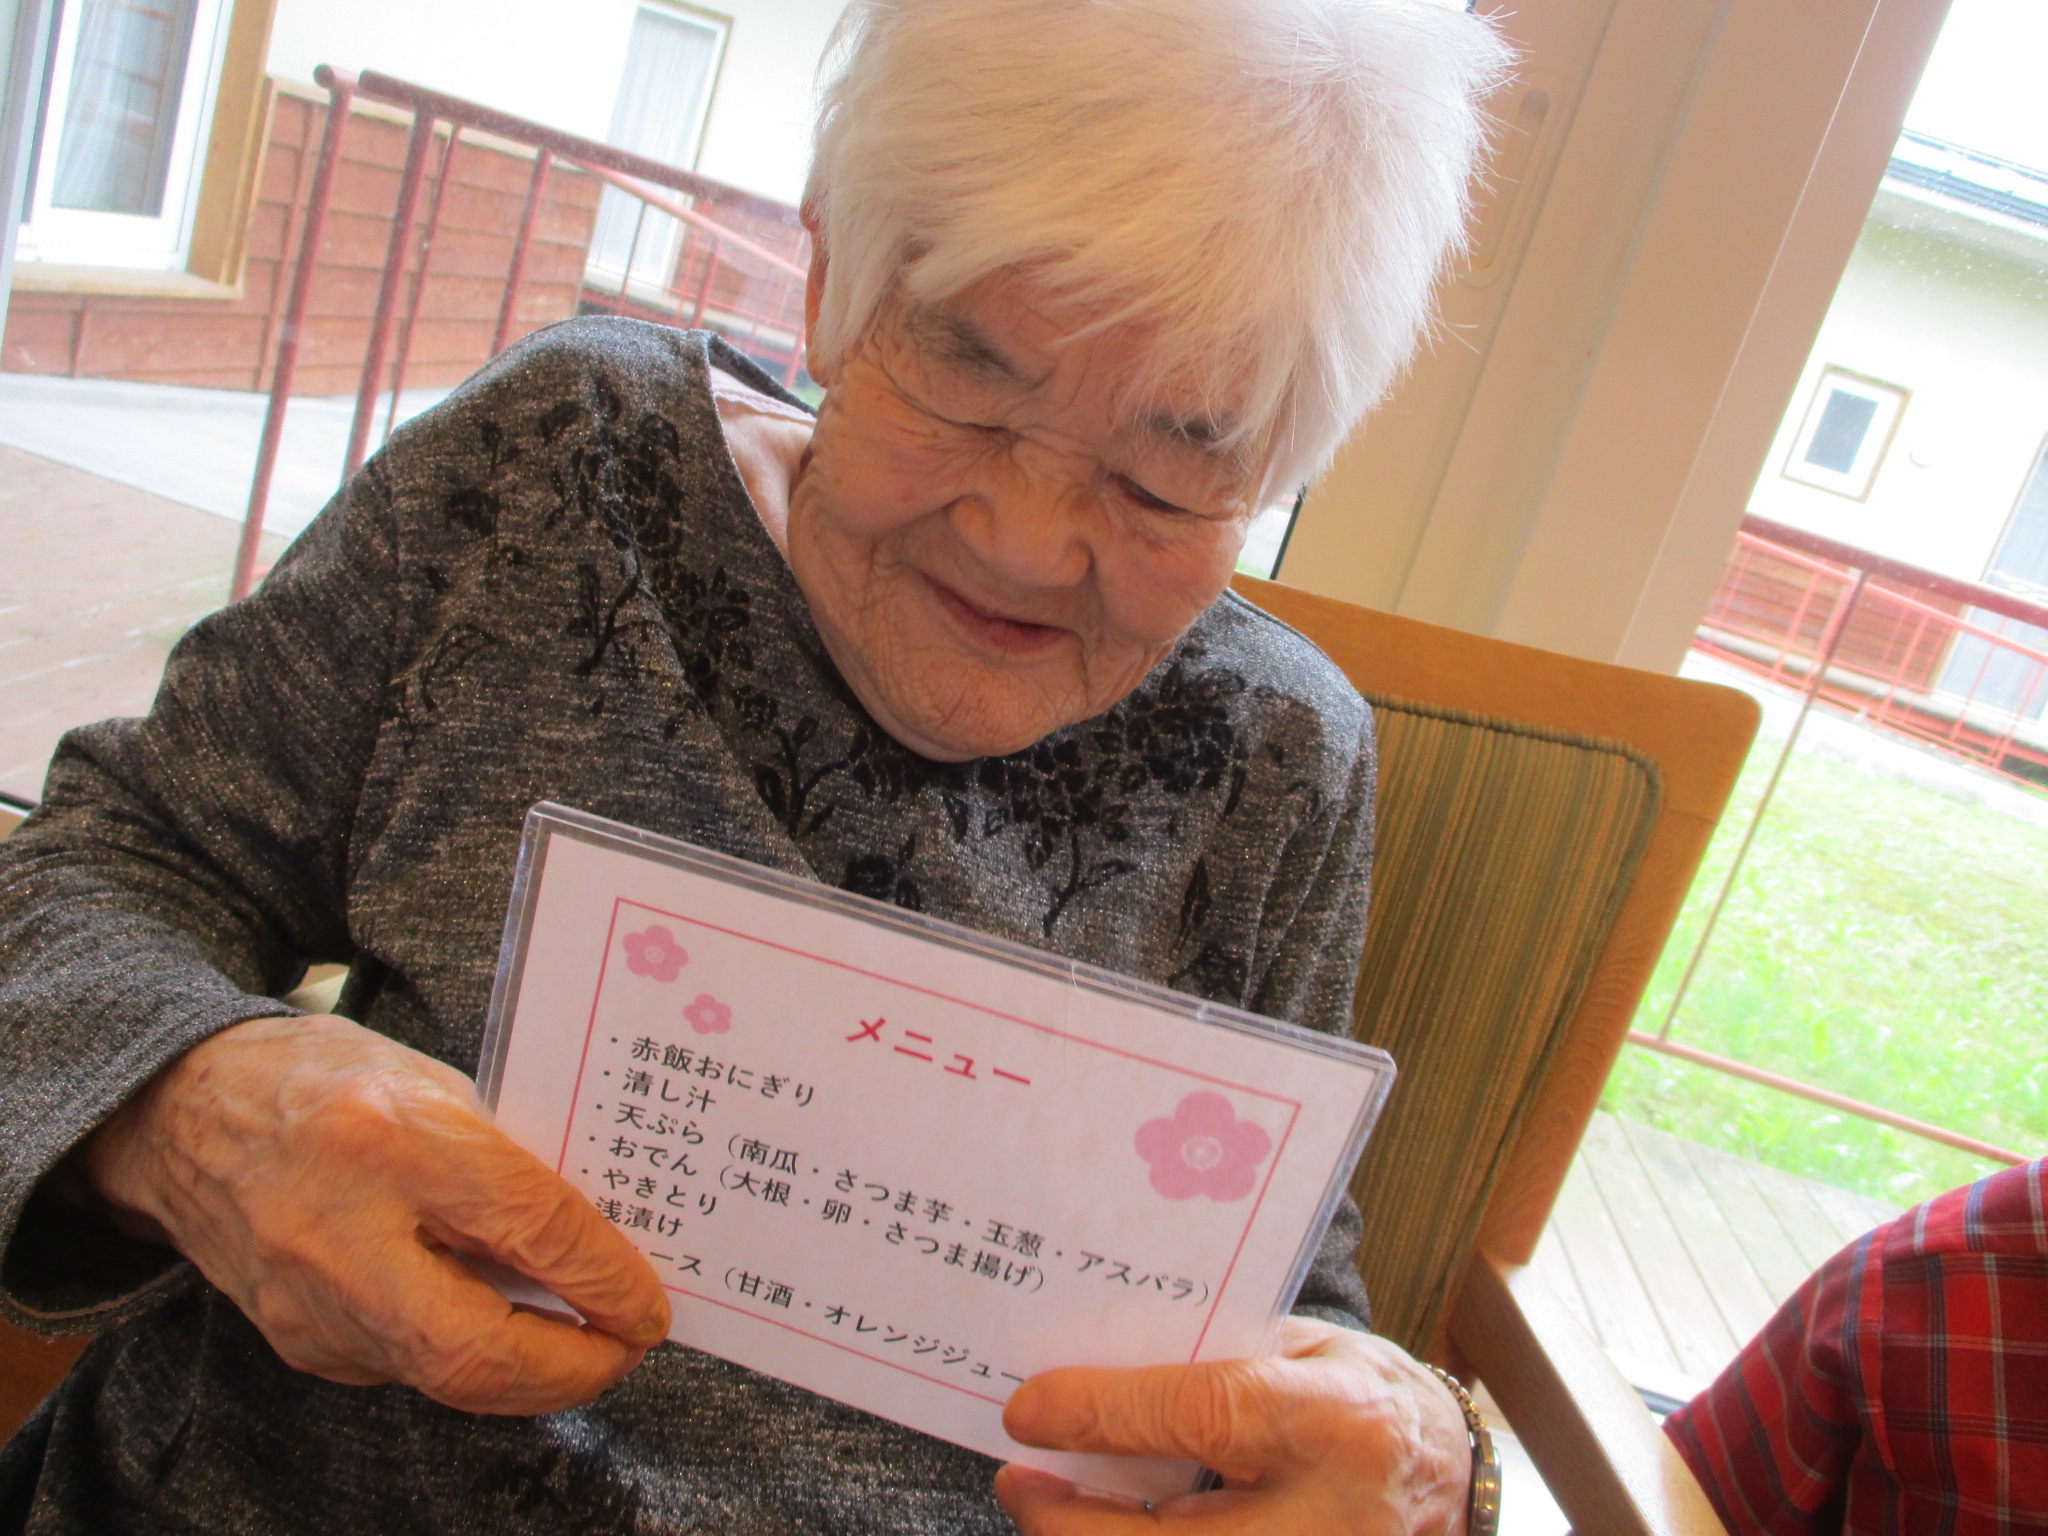 メニュー
・赤飯おにぎり
・清し汁
・天ぷら(南瓜・さつま芋・玉葱・アスパラ)
・おでん(大根・卵・さつま揚げ)
・やきとり
浅漬け
ース(甘酒・オレンジジュー